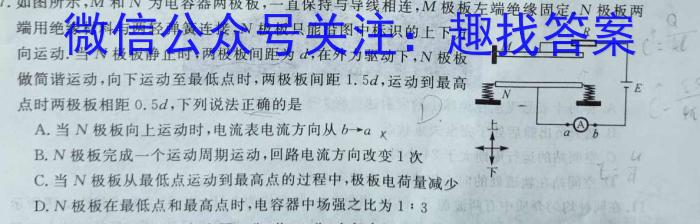 如图所示,M和N为电容器两极板,一直保持与导线相连,M极板左端绝缘固定,N极板两
端用绝缘
微信公众号关注:趣找答案
向运动.当N极板静止时,两极板间距为d,在外力驱动下,N极板
做简谐运动,向下运动至最低点时,两极板间距1.5d,运动到最高
点时两极板相距0.5d,下列说法正确的是
A.当N极板向上运动时,电流表电流方向从b→a
B.N极板完成一个运动周期运动,回路电流方向改变1次
C.当N极板从最低点运动到最高点的过程中,极板电荷量减少
D.N极板在最低点和最高点时,电容器中场强之比为1:3
D
M
N
E
上
下
a A b